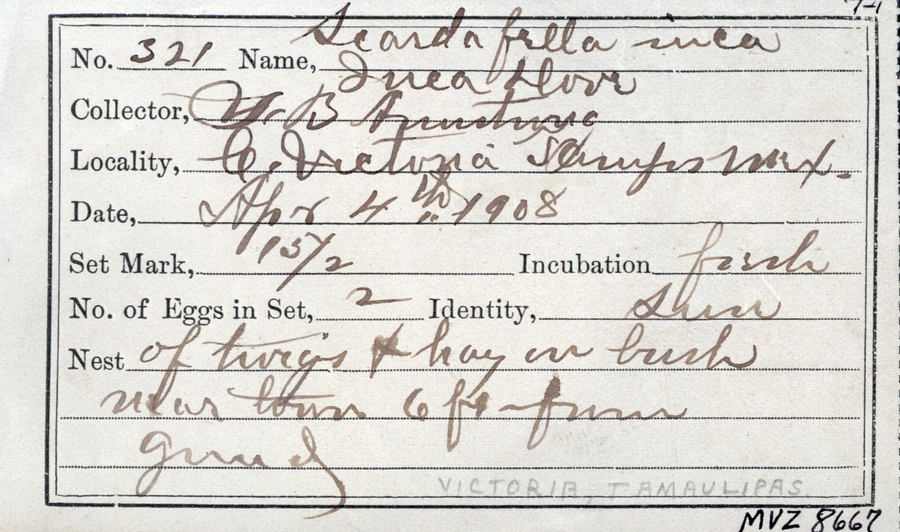 No. 321 Name, Scardafella inca
Inca Dove
Collector, B Armstrong
Locality, C. Victoria Tamps Mex.
Date, Apr 4th 1908
Set Mark, 15/2 Incubation fresh
No. of Eggs in Set, 2 Identity, Sure
Nest of twigs & hay on bush
near town 6 ft from
ground
VICTORIA, TAMAULIPAS.
MVZ 8667